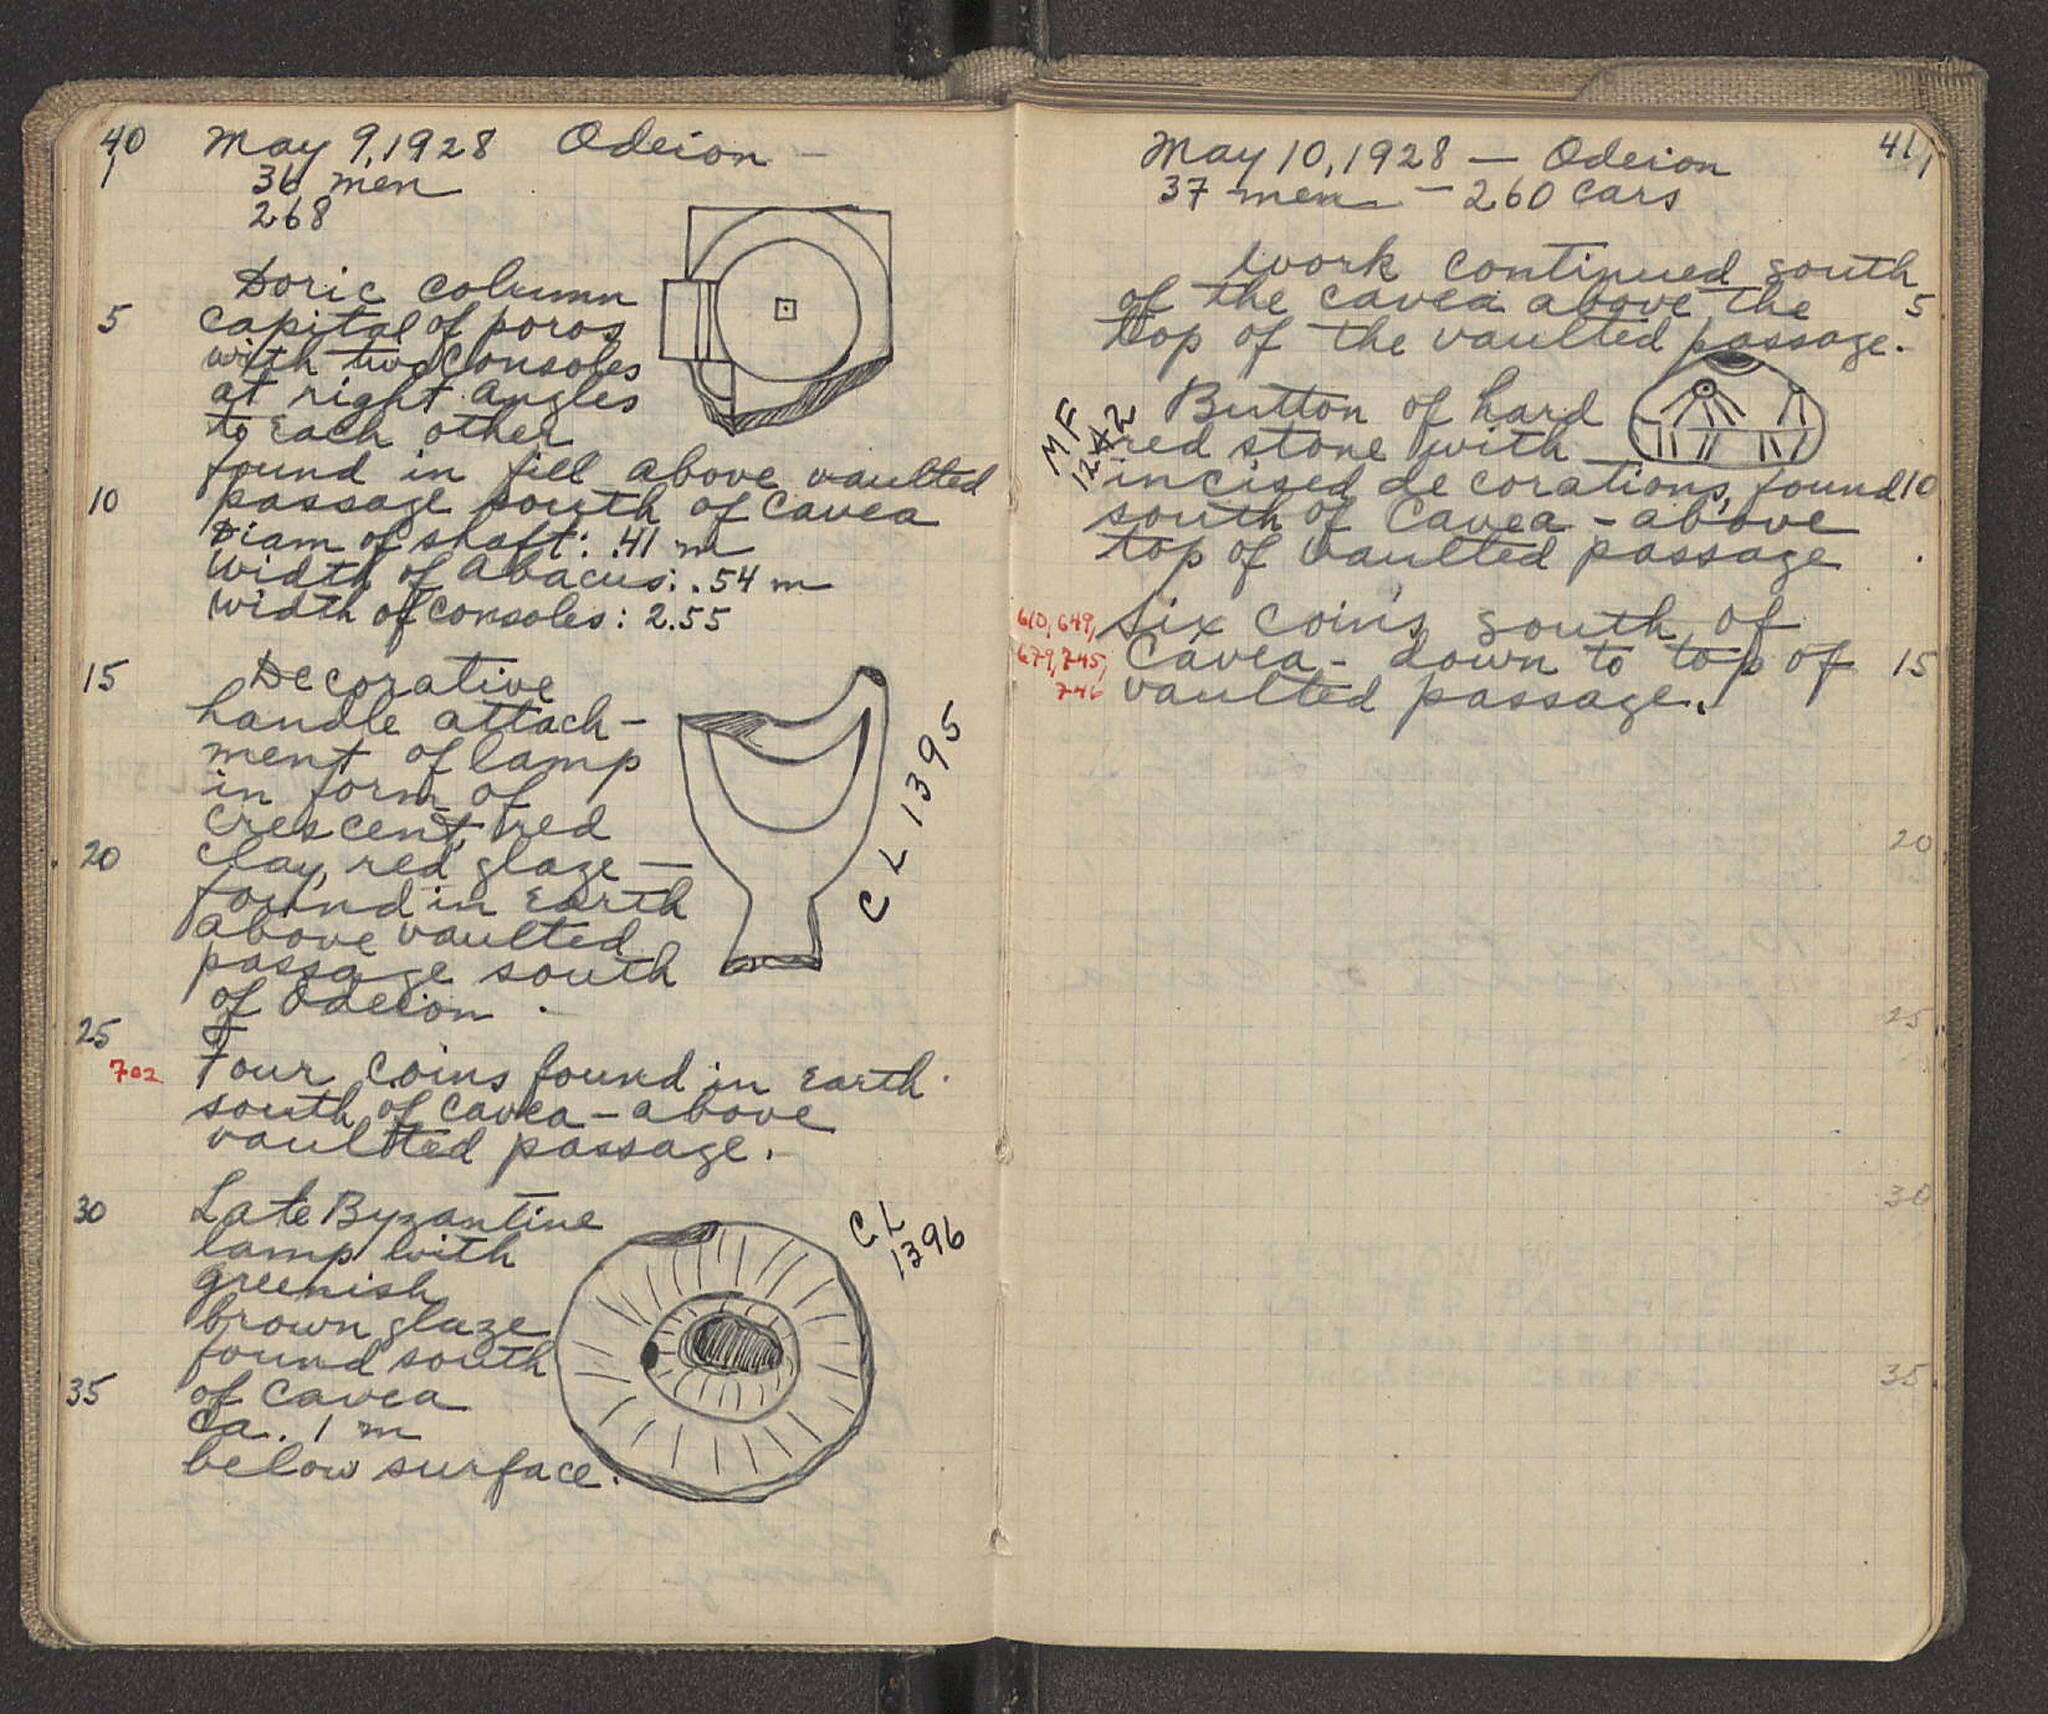 40
1
May 9, 1928 Odeion —
36 men
268
Doric column
5 capital of poros
with two consoles
at right angles
to each other
found in fill above vaulted
10 passage south of cavea
Diam of shaft: .41 m
Width of abacus: .54 m
Width of consoles: 2.55
15 Decorative
handle attach-
ment of lamp
in form of
crescent, red
20 clay, red glaze —
found in earth
above vaulted
passage south
of Odeion
CL 1395
25
702 Four coins found in earth
south of cavea - above
vaulted passage.
30 Late Byzantine
lamp with
greenish
brown glaze
found south
35 of cavea
ca. 1 m
below surface.
CL
1396
41
1
May 10, 1928 — Odeion
37 men — 260 cars
Work continued south
of the cavea above the 5
top of the vaulted passage.
MF
Button of hard
red stone with
incised decorations, found 10
south of Cavea - above
top of vaulted passage
610, 649, Six coins south of
679, 745, Cavea - down to top of 15
746 vaulted passage.
20
25
30
35